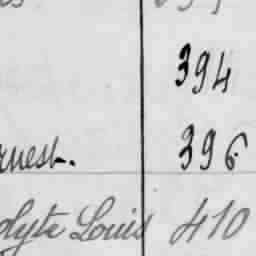 394
rnest. 396
olyte Louis 410